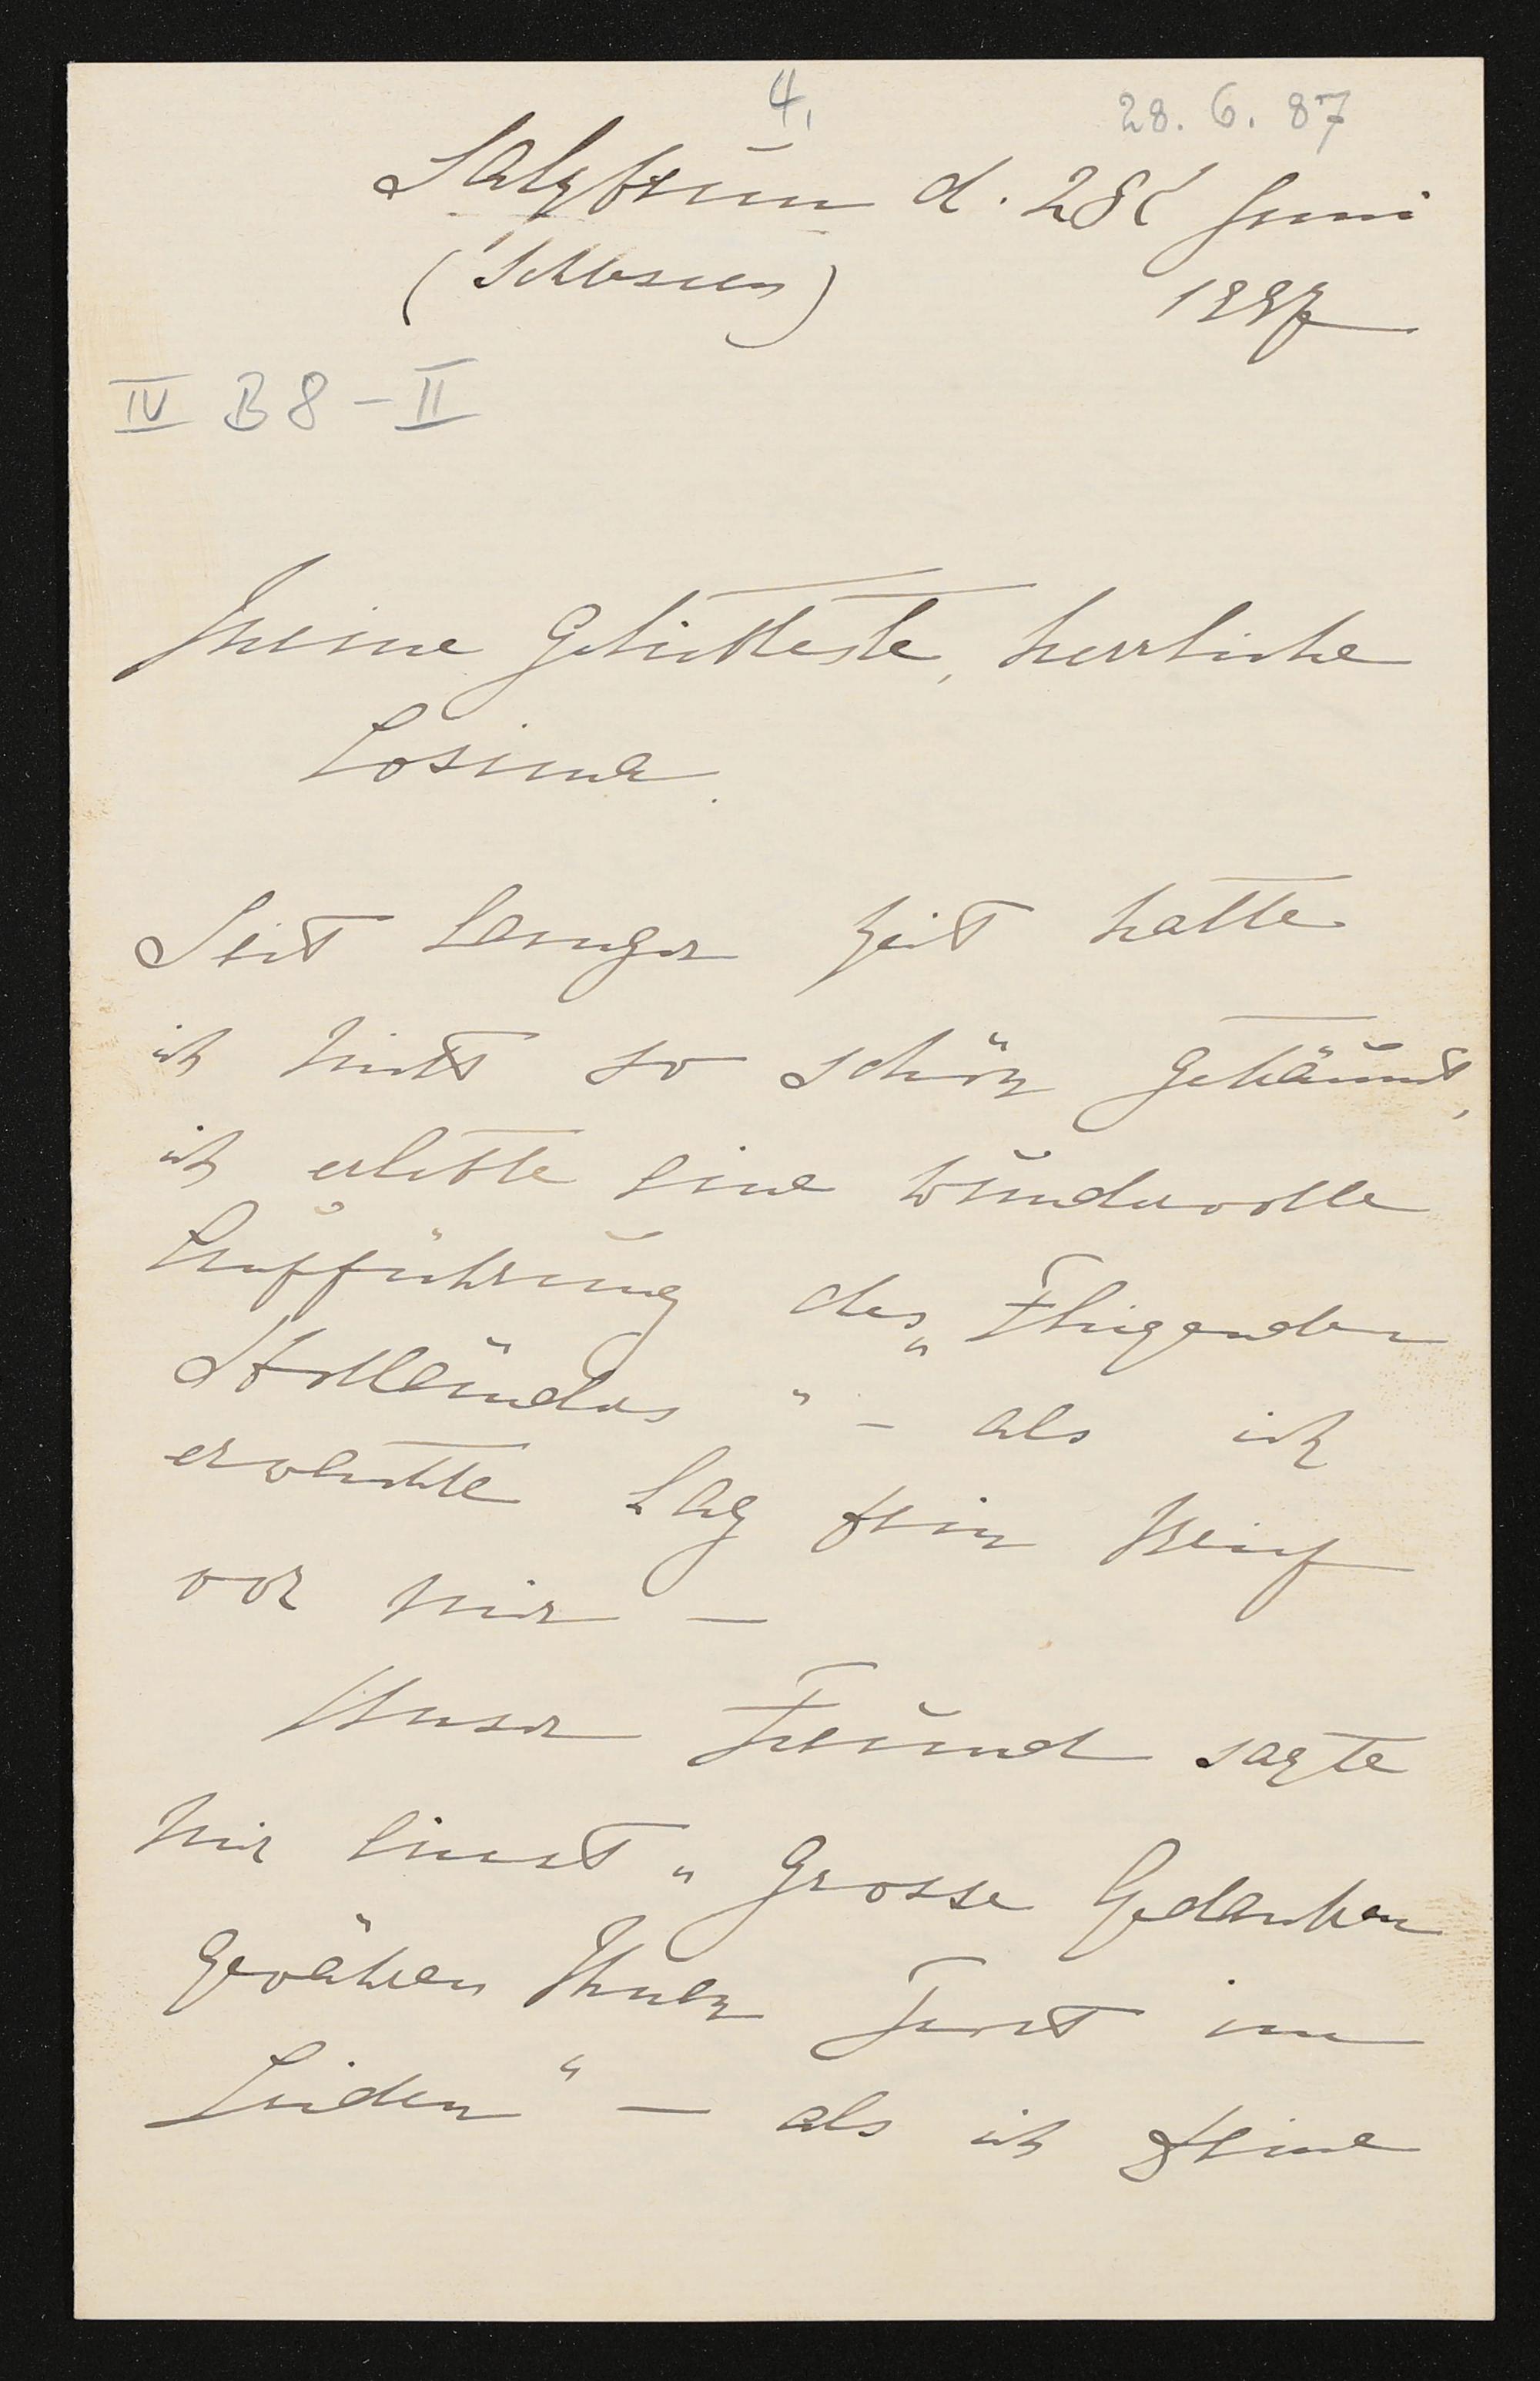 4.
28. 6. 87
Salzbrunn d. 28t Juni
(Schlesien) 1887
IV B 8 - II
Meine Geliebteste, herrliche
Cosima.
Seit langer Zeit hatte
ich nichts so schön geträumt,
ich erlebte eine wundervolle
Aufführung des „Fliegenden
Holländers" – als ich
erwachte lag Dein Brief
vor mir –
Unser Freund sagte
mir einst „Grosse Gedanken
gewähren Ihnen Trost im
Leiden" – als ich Deine